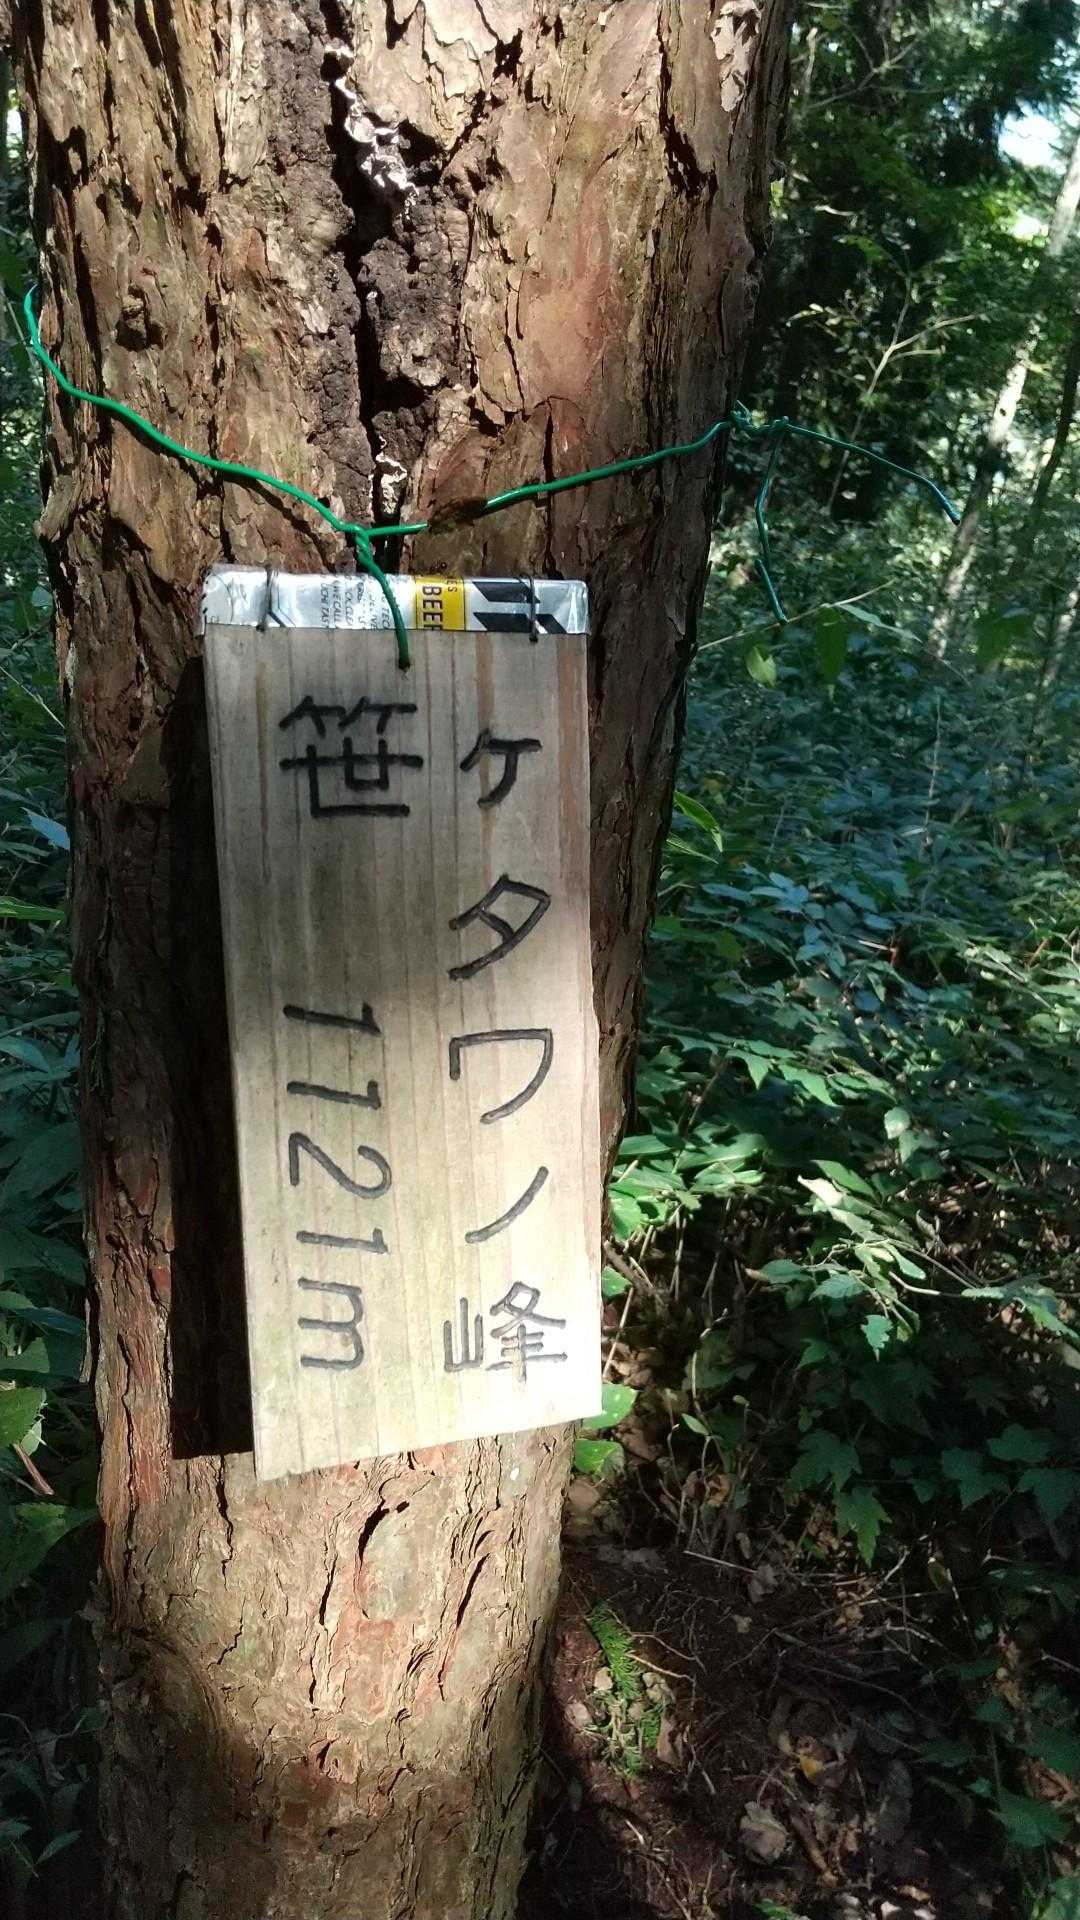 ヶタワノ峰
笹 1121m
BEER